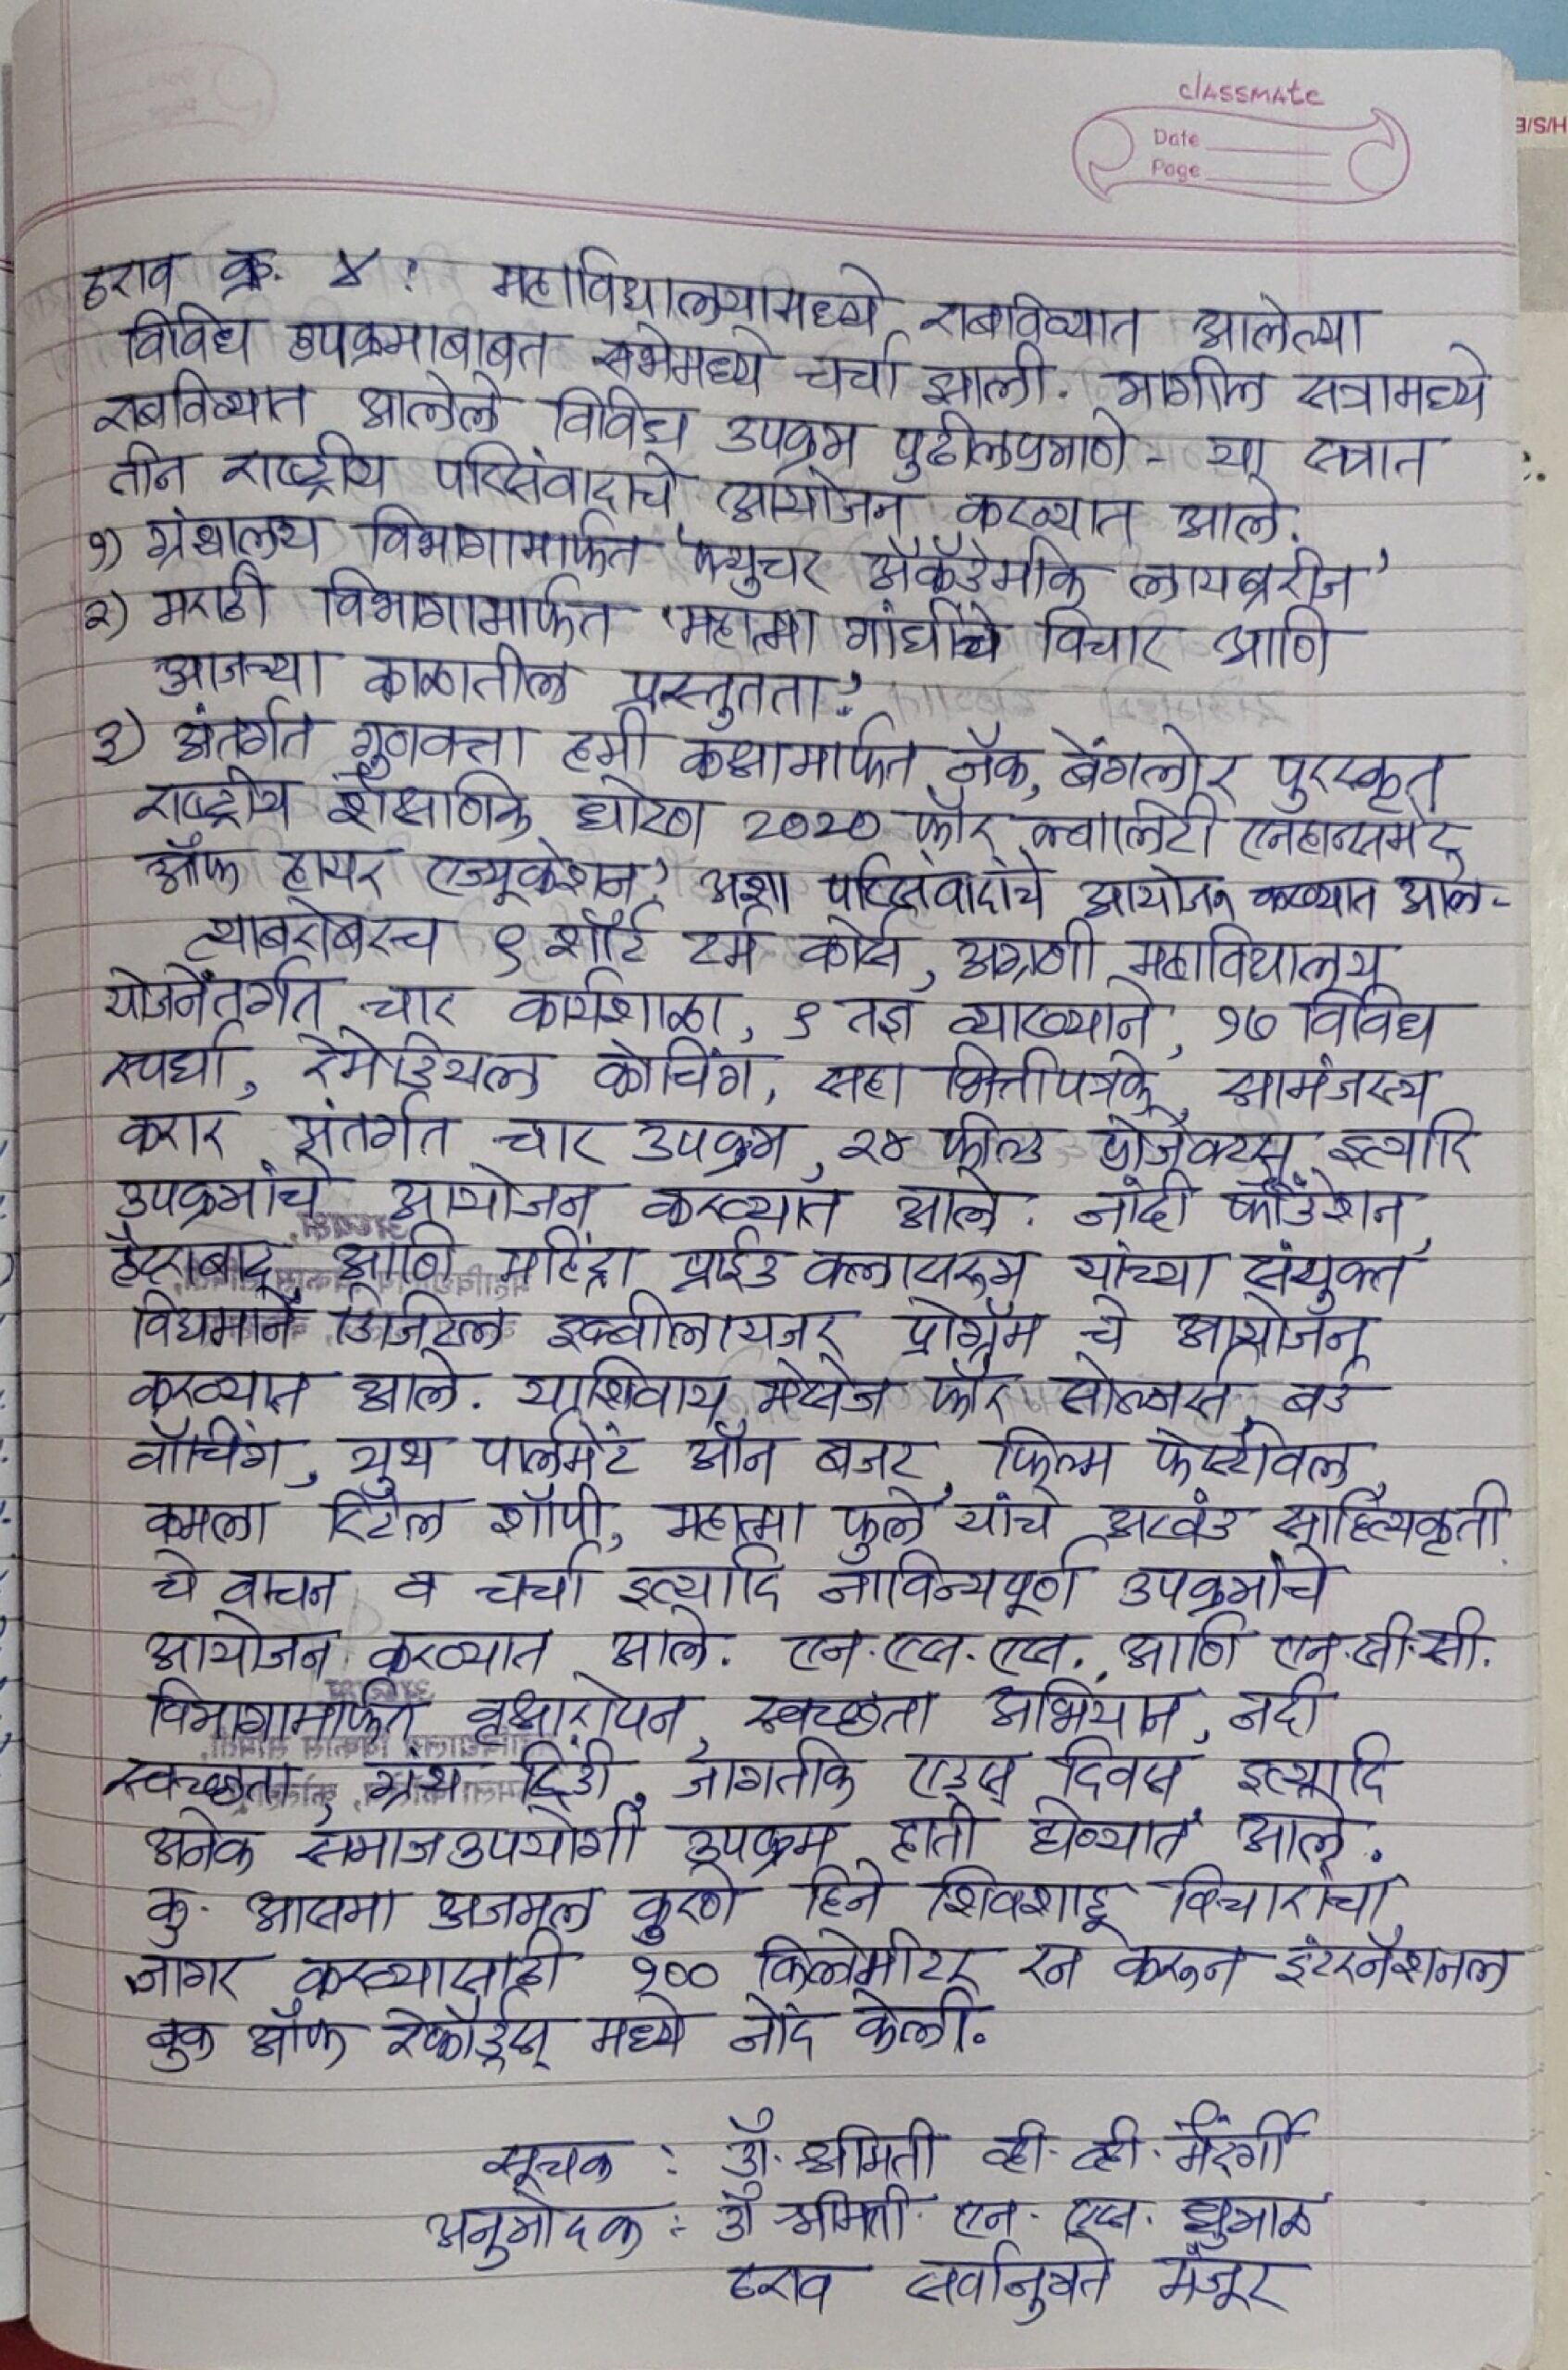 classmate
Date
Page
ठराव क्र. ४ : महाविद्यालयामध्ये राबविण्यात आलेल्या
विविध उपक्रमाबाबत सभेमध्ये चर्चा झाली. मागील सत्रामध्ये
राबविण्यात आलेले विविध उपक्रम पुढीलप्रमाणे - या सत्रात
तीन राष्ट्रीय परिसंवादाचे आयोजन करण्यात आले.
१) ग्रंथालय विभागामार्फत 'फ्युचर अॅकॅडेमीक लायब्ररीज'
२) मराठी विभागामार्फत 'महात्मा गांधींचे विचार आणि
आजच्या काळातील प्रस्तुतता.'
३) अंतर्गत गुणवत्ता हमी कक्षामार्फत नॅक, बेंगलोर पुरस्कृत
राष्ट्रीय शैक्षणिक धोरण 2020 फॉर क्वालिटी एनहान्समेंट
ऑफ हायर एज्यूकेशन.' अशा परिसंवादांचे आयोजन करण्यात आले-
त्याबरोबरच ९ शॉर्ट टर्म कोर्स, अग्रणी महाविद्यालय
योजनेंतर्गत चार कार्यशाळा, ९ तज्ञ व्याख्याने, १७ विविध
स्पर्धा, रेमेडियल कोचिंग, सहा भित्तीपत्रके, सामंजस्य
करार अंतर्गत चार उपक्रम, २४ फील्ड प्रोजेक्टस् इत्यादि
उपक्रमांचे आयोजन करण्यात आले. नांदी फौंडेशन,
हैद्राबाद आणि महिंद्रा प्राईड क्लासरूम यांच्या संयुक्त
विद्यमाने डिजिटल इक्वीलायजर प्रोग्रॅम चे आयोजन
करण्यात आले. याशिवाय मेसेज फॉर सोल्जर्स, बर्ड
वॉचिंग, युथ पार्लमेंट ऑन बजट, फिल्म फेस्टीवल,
कमला रिटेल शॉपी, महात्मा फुले यांचे अखंड साहित्यिकृती
चे वाचन व चर्चा इत्यादि नाविन्यपूर्ण उपक्रमांचे
आयोजन करण्यात आले. एन.एस.एस. आणि एन.सी.सी.
विभागामार्फत वृक्षारोपन, स्वच्छता अभियान, नदी
स्वच्छता, ग्रंथ दिंडी, जागतिक एड्स् दिवस इत्यादि
अनेक समाजउपयोगी उपक्रम हाती घेण्यात आले.
कु. आसमा अजमल कुरणे हिने शिवशाहू विचारांचा
जागर करण्यासाठी १०० किलोमीटर रन करून इंटरनॅशनल
बुक ऑफ रेकॉर्ड्स् मध्ये नोंद केली.
सूचक : डॉ. श्रीमती व्ही. व्ही. मैंदर्गी
अनुमोदक : डॉ श्रीमती. एन. एस. धुमाळ
ठराव सर्वानुमते मंजूर